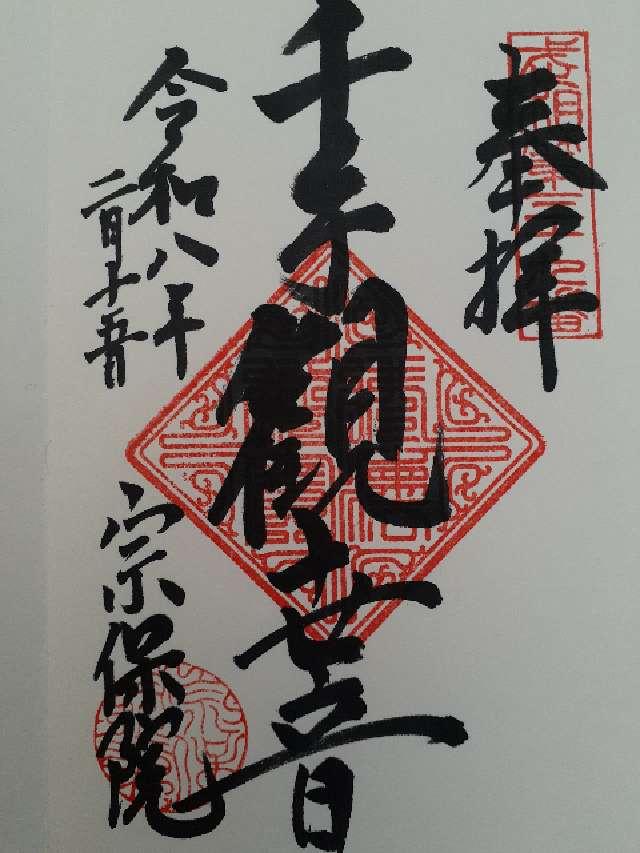 奉拝
千手観世音
令和八年
二月十五日
宗保院